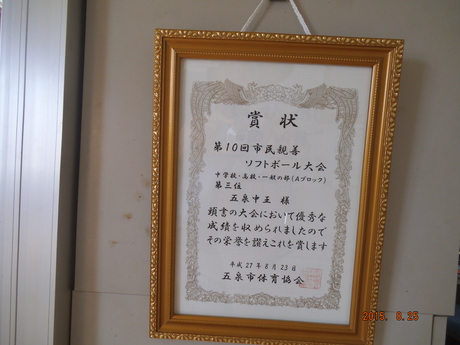 賞状
第10回市民親善
ソフトボール大会
中学校・高校・一般の部(Aブロック)
第三位
五泉中王 様
頭書の大会において優秀な
成績を収められましたので
その栄誉を讃えこれを賞します
平成27年8月23日
五泉市体育協会
2015. 8.25